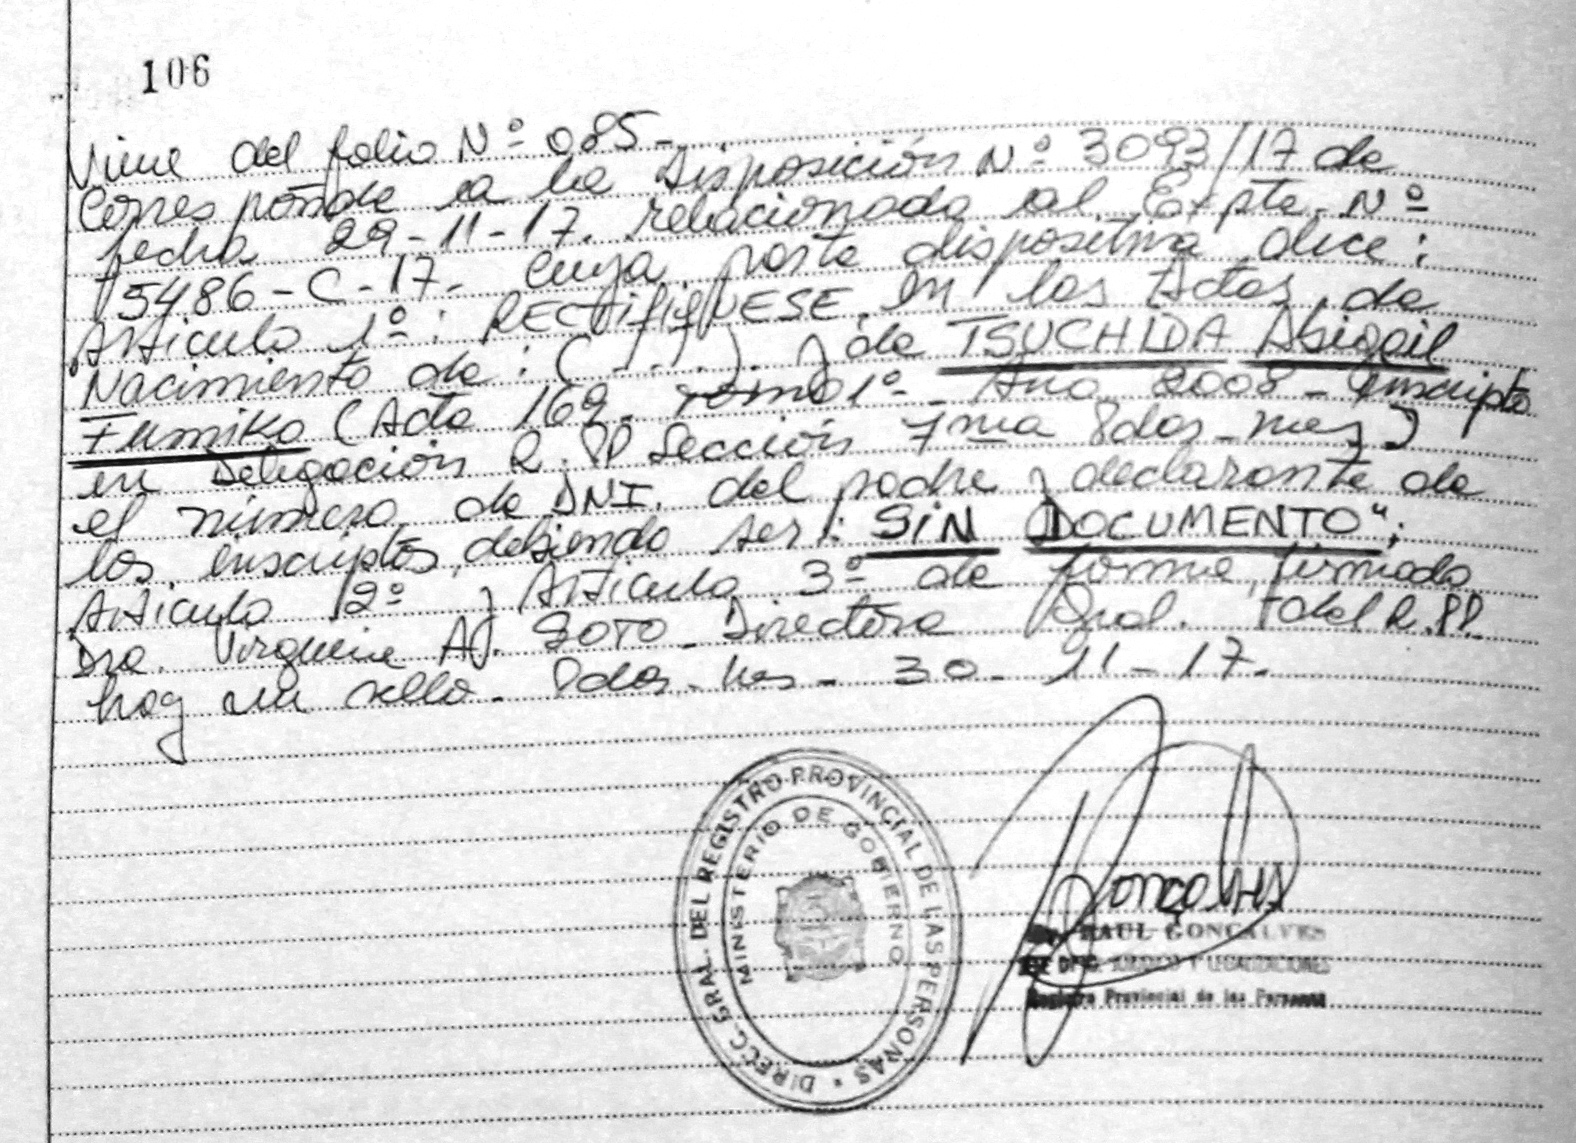 106
Viene del folio Nº 085-
Corresponde a la Disposición Nº 3093/17 de
fecha 29-11-17. relacionada al Expte. Nº
5486-C-17- cuya parte dispositiva dice:
Artículo 1º: RECTIFIQUESE en las Actas de
Nacimiento de: (...) y de TSUCHIDA Abigail
Fumiko (Acta 169- tomo 1º- Año 2008- Inscripta
en Delegación R.PP Sección 7ma Pdas-mnes)
el número de DNI. del padre y declarante de
los inscriptos, debiendo ser: SIN DOCUMENTO";
Artículo 2º y Artículo 3º de forma, firmado
Dra. Virginia A. SOTO- Directora Gral. del R.PP.
hay un sello- Pdas-Mnes- 30-11-17-
DIRECC. GRAL. DEL REGISTRO PROVINCIAL DE LAS PERSONAS
MINISTERIO DE GOBIERNO
Goncalves
RAUL GONCALVES
JURIDICO Y LEGALIZACIONES
Registro Provincial de las Personas